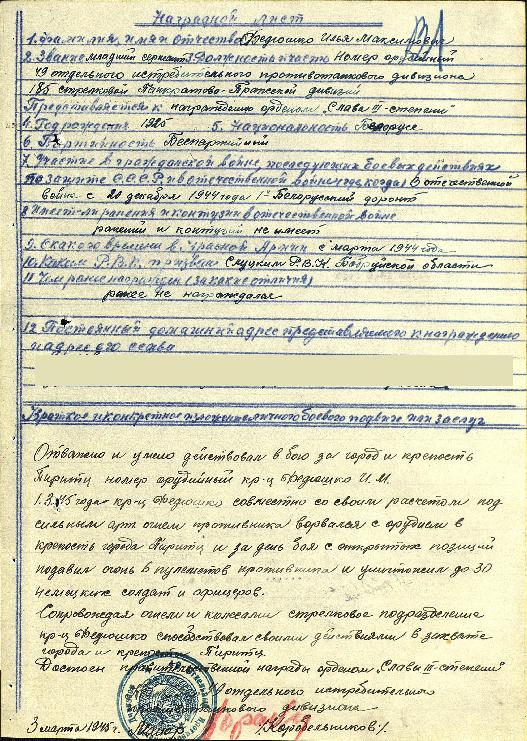 Наградной лист
1. Фамилия имя и отчество Федюшко Илья Максимович
2. Звание младший сержант 3. Должность и часть Номер орудийный
49 отдельного истребительного противотанкового дивизиона
185 стрелковой Панкратово-Пражской дивизии
Представляется к награждению орденом "Славы III-степени"
4. Год рождения 1925 5. Национальность Белорус
6. Партийность Беспартийный
7. Участие в гражданской войне, последующих боевых действиях
по защите С.С.С.Р. и в отечественной войне (где, когда) В отечественной
война с 20 декабря 1944 года 1й Белорусский фронт
8. Имеет ли ранения и контузии в отечественной войне
ранений и контузий не имеет
9. С какого времени в Красной Армии с марта 1944 года
10. Каким Р.В.К. призван Слуцким Р.В.К. Бобруйской области
11. Чем ранее награжден (за какие отличия)
ранее не награждался
12. Постоянный домашний адрес представляемого к награждению
и адрес его семьи
Краткое и конкретное изложение личного боевого подвига или заслуг
Отважно и умело действовал в бою за город и крепость
Пиритц номер орудийный кр-ц Федюшко И.М.
1.3.45 года кр-ц Федюшко совместно со своим расчетом под
сильным арт огнем противника ворвался с орудием в
крепость города Пиритц и за день боя с открытых позиций
подавил огонь 6 пулеметов противника и уничтожил до 30
немецких солдат и офицеров.
Сопровождая огнем и колесами стрелковое подразделение
кр-ц Федюшко способствовал своими действиями в захвате
города и крепости Пиритц.
Достоин правительственной награды орденом "Славы III-степени"
отдельного истребительного
дивизиона
3 марта 1945 г. Майор /Коробельников/.